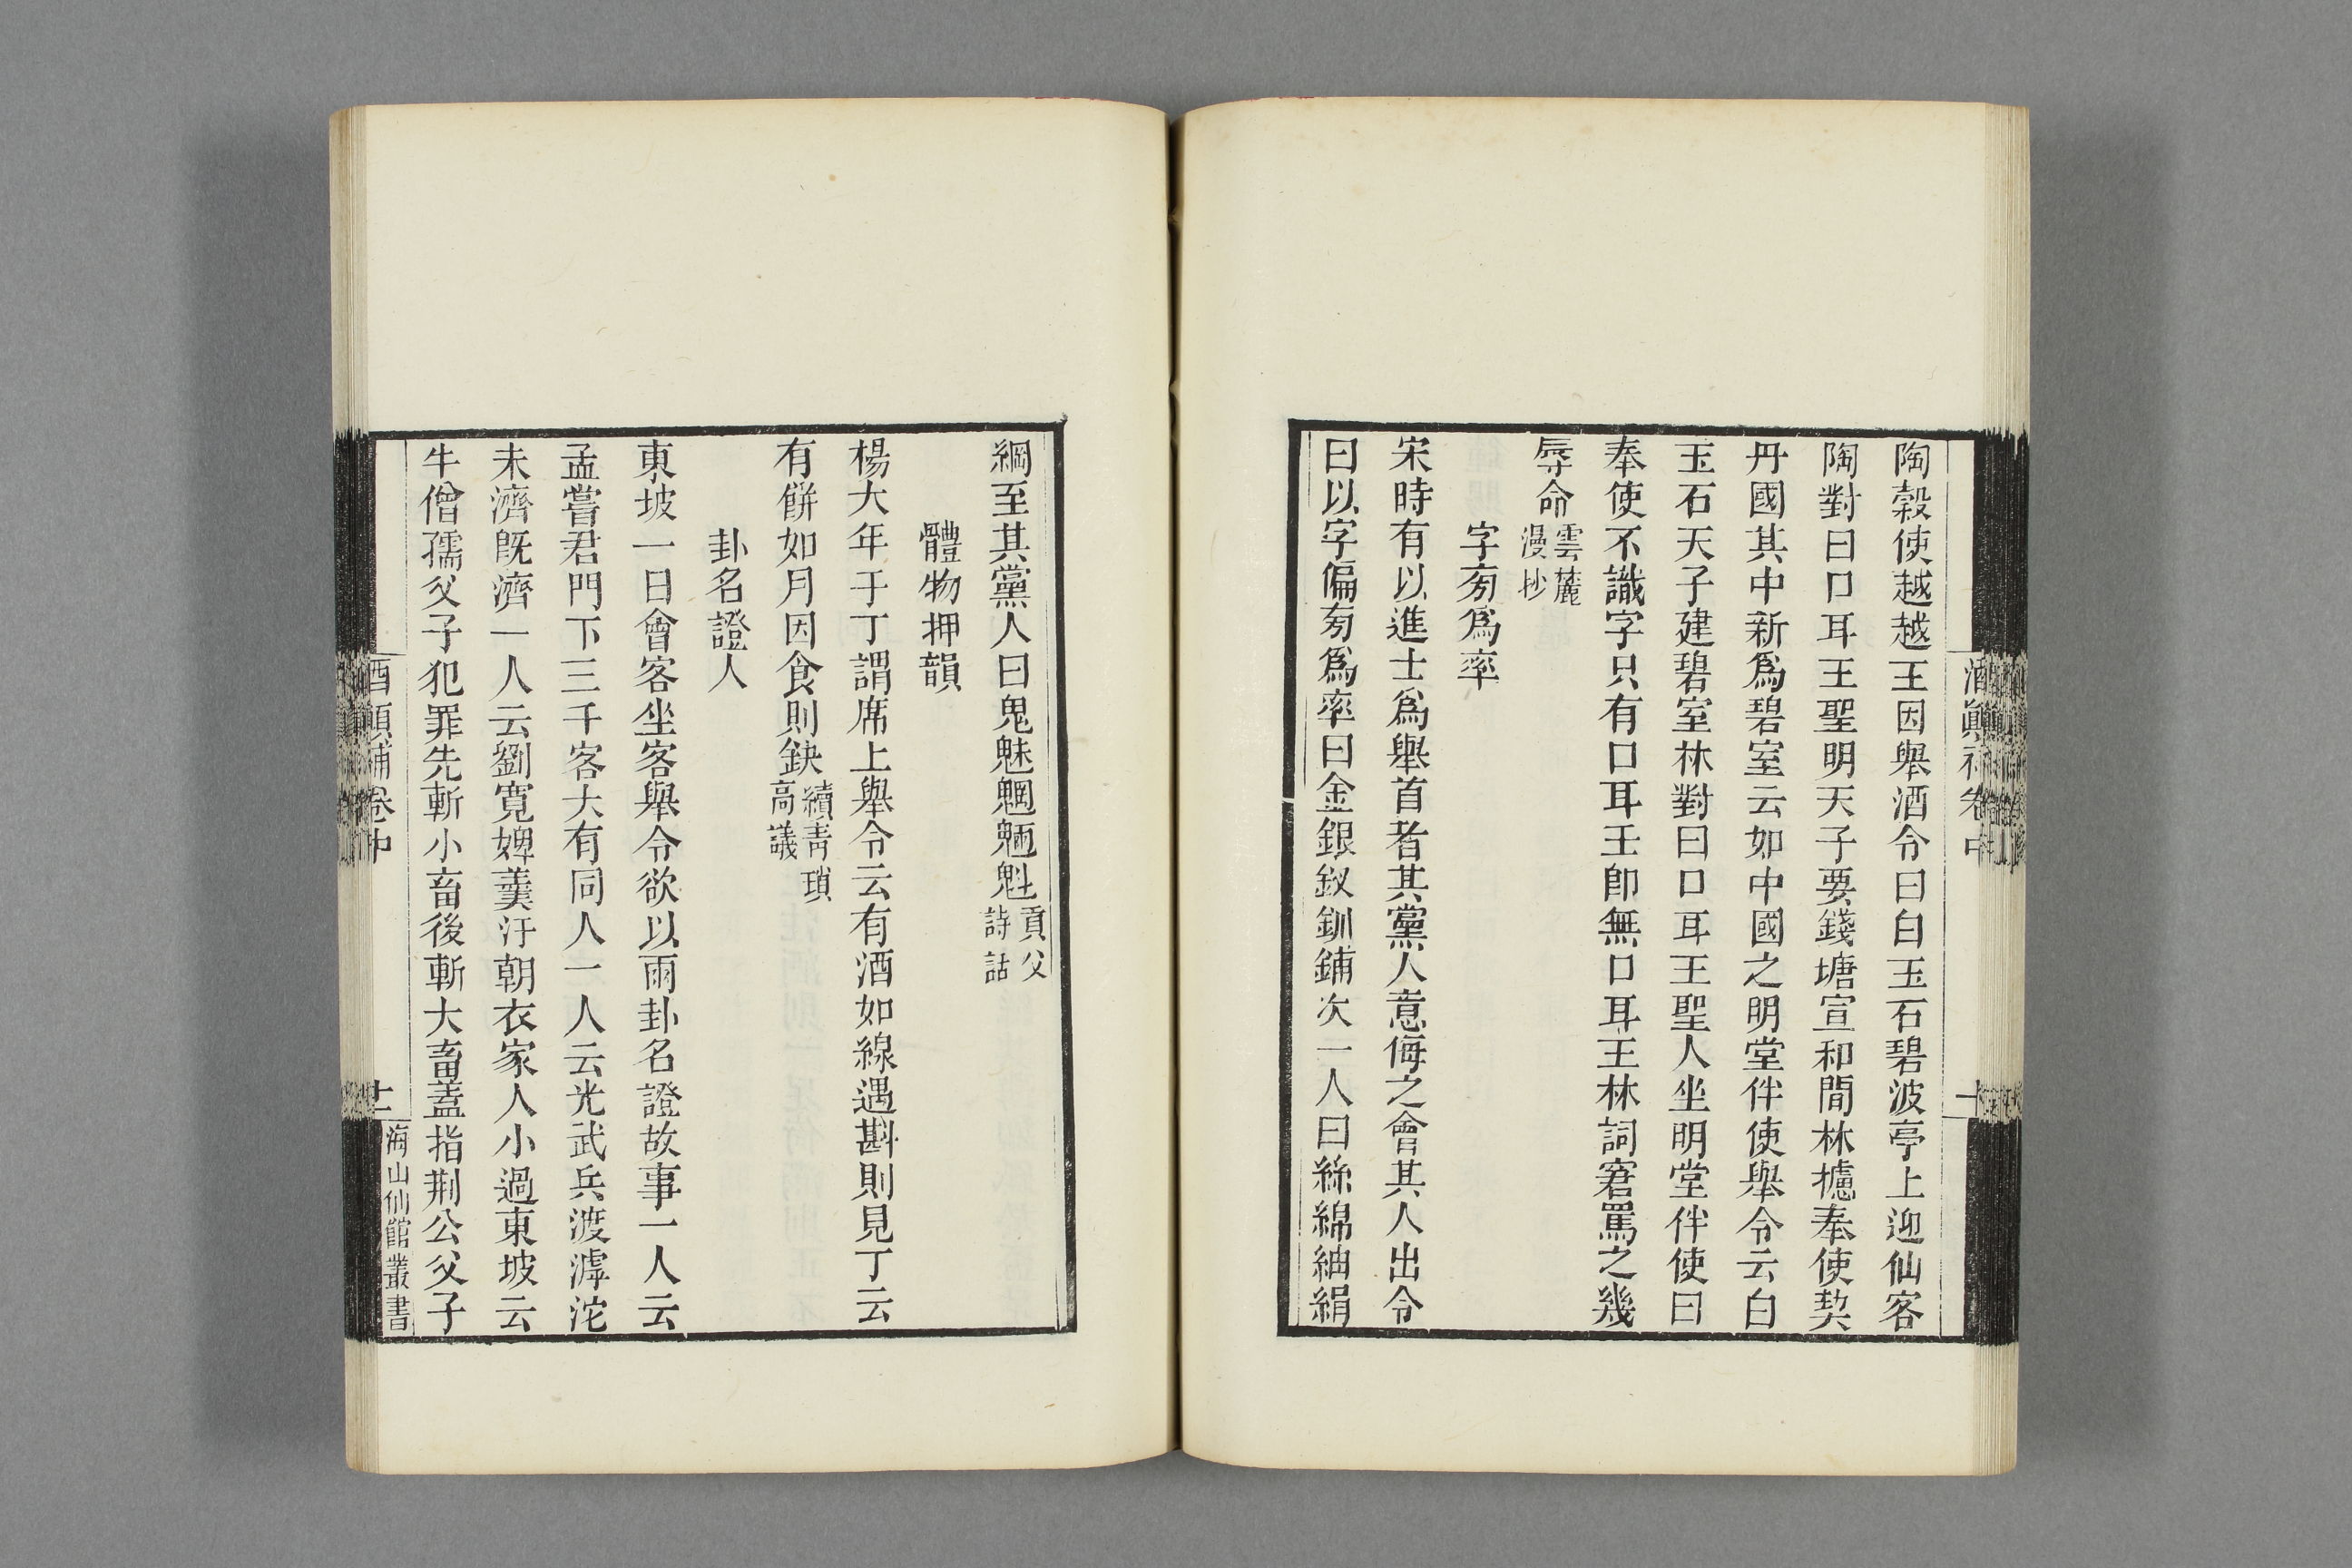 陶穀使越越王因舉酒令曰白玉石碧波亭上迎仙客
陶對曰口耳王聖明天子要錢塘宣和間林攄奉使契
丹國其中新爲碧室云如中國之明堂伴使舉令云白
玉石天子建碧室林對曰口耳王聖人坐明堂伴使曰
奉使不識字只有口耳王卽無口耳王林詞窘罵之幾
辱命雲麓
漫抄
字旁爲率
宋時有以進士爲舉首者其黨人意侮之會其人出令
曰以字偏旁爲率曰金銀釵釧鋪次一人曰絲綿紬絹
綱至其黨人曰鬼魅魍魎魁貢父
詩話
體物押韻
楊大年于丁謂席上舉令云有酒如線遇斟則見丁云
有餅如月因食則缺續靑瑣
高議
卦名證人
東坡一日會客坐客舉令欲以兩卦名證故事一人云
孟嘗君門下三千客大有同人一人云光武兵渡滹沱
未濟旣濟一人云劉寬婢羹汙朝衣家人小過東坡云
牛僧孺父子犯罪先斬小畜後斬大畜蓋指荆公父子
卷中
海山仙館叢書